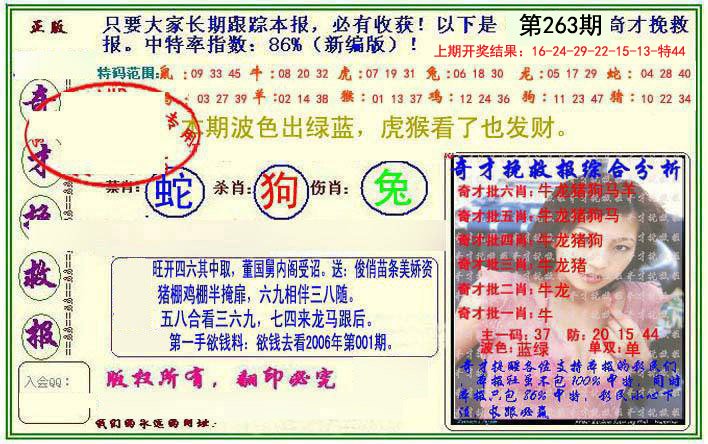 正版
只要大家长期跟踪本报，必有收获！以下是 第263期 奇才挽救
报。中特率指数：86%（新编版）！
上期开奖结果：16-24-29-22-15-13-特44
特码范围: 鼠：09 33 45 牛：08 20 32 虎：07 19 31 兔：06 18 30 龙：05 17 29 蛇：04 28 40
03 27 39 羊：02 14 38 猴：01 13 37 鸡：12 24 36 狗：11 23 47 猪：10 22 34
专用
本期波色出绿蓝，虎猴看了也发财。
禁肖: 蛇 杀肖: 狗 伤肖: 兔
奇才挽救报
旺开四六其中取，董国舅内阁受诏。送：俊俏苗条美娇资
猪棚鸡棚半掩扉，六九相伴三八随。
五八合看三六九，七四来龙马跟后。
第一手欲钱料：欲钱去看2006年第001期。
入会QQ：
版权所有，翻印必究
我们的永远的网址：
奇才挽救报综合分析
奇才批六肖:牛龙猪狗马羊
奇才批五肖:牛龙猪狗马
奇才批四肖:牛龙猪狗
奇才批三肖:牛龙猪
奇才批二肖:牛龙
奇才批一肖:牛
主一码:37 防:20 15 44
波色:蓝绿 单双:单
奇才提醒各位支持本报的彩民们,
本报虽不包100%中特,但
本报只包86%中特,彩民小心下
注,长跟必赢